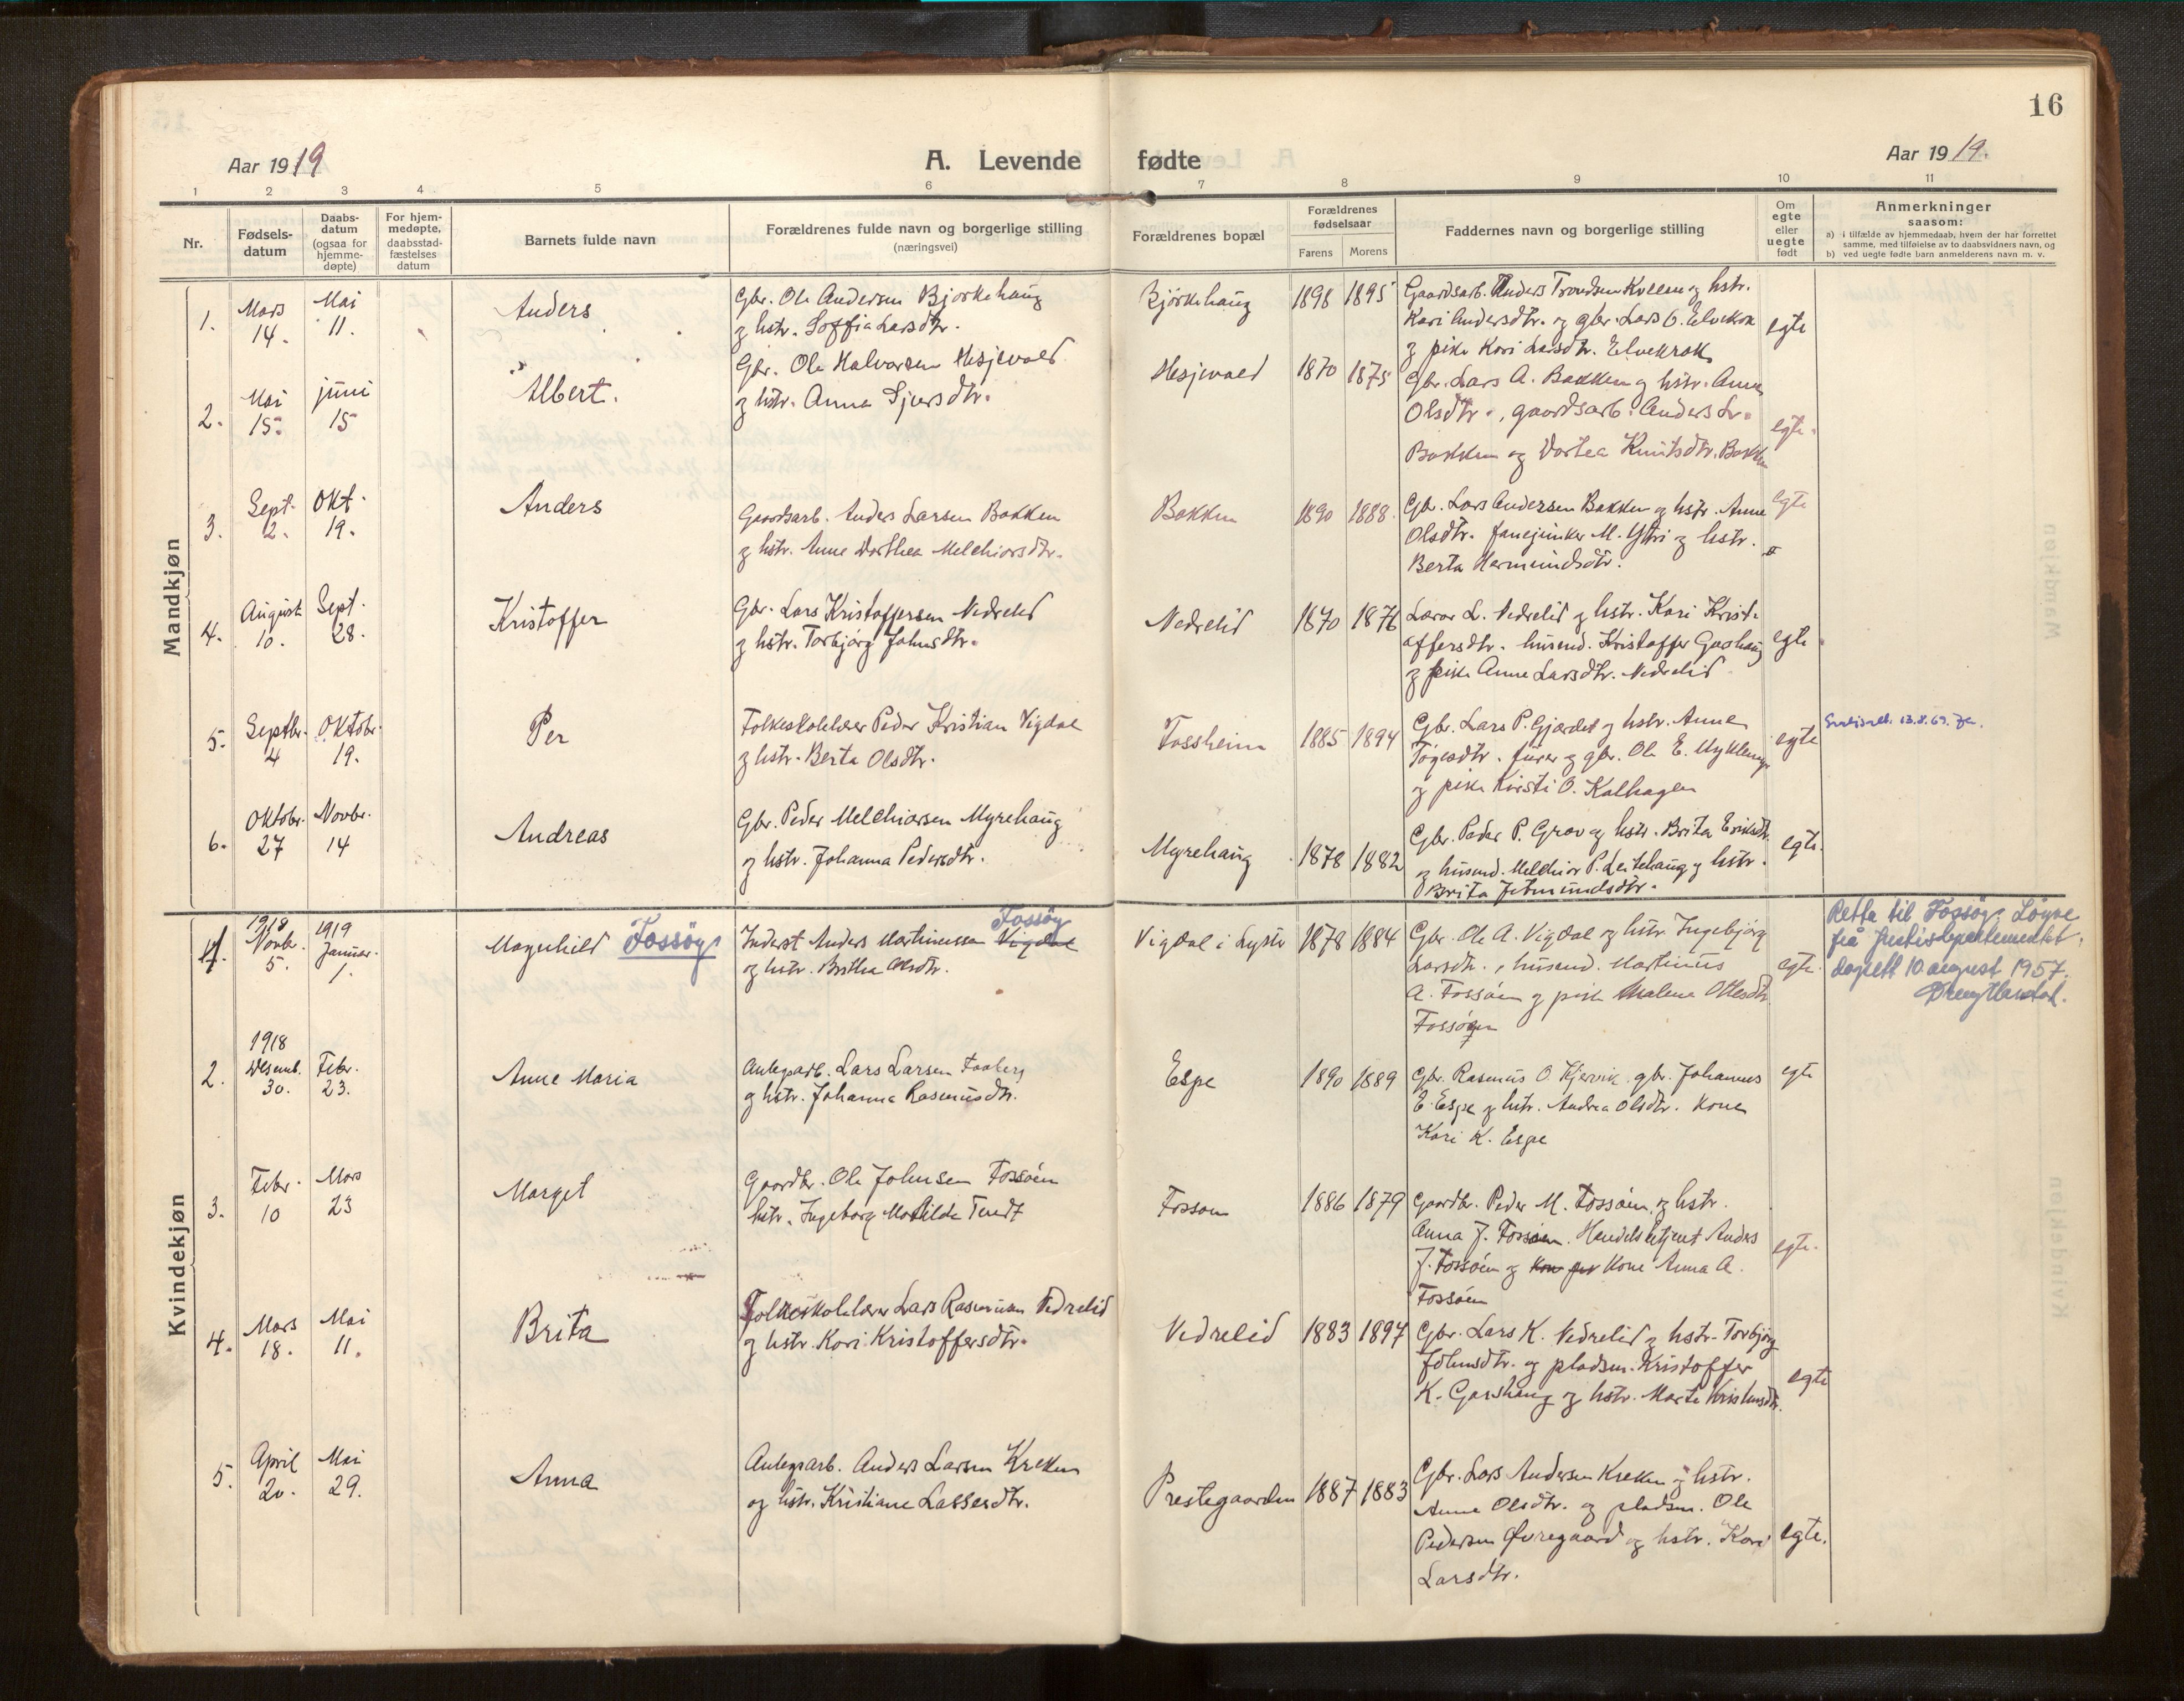 16
Aar 1919
A. Levende fødte
Aar 1919.
1 2 3 4 5 6 7 8 9 10 11
Nr.
Fødsels-
datum
Daabs-
datum
(ogsaa for
hjemme-
døpte)
For hjem-
medøpte,
daabsstad-
fæstelses
datum
Barnets fulde navn
Forældrenes fulde navn og borgerlige stilling
(næringsvei)
Forældrenes bopæl
Forældrenes
fødselsaar
Farens Morens
Faddernes navn og borgerlige stilling
Om
egte
eller
uegte
født
Anmerkninger
saasom:
a) i tilfælde av hjemmedaab, hvem der har forrettet
samme, med tilføielse av to daabsvidners navn, og
b) ved uegte fødte barn anmelderens navn m. v.
Mandkjøn
1. Mars 14. Mai 11. Anders
Gbr. Ole Andersen Bjørkehaug
og hstr. Soffia Larsdtr.
Bjørkehaug 1898 1895
Gaardsarb. Anders Trondsen Kveen og hstr.
Kari Andersdtr. og gbr. Lars O. Elvekrok
og pike Kari Larsdtr. Elvekrok
egte
2. Mai 15. juni 15 Albert.
Gbr. Ole Halvorsen Hesjevold
og hstr. Anna Sjursdtr.
Hesjevold 1870 1875
Gbr. Lars A. Bakken og hstr. Anna
Olsdtr., gaardsarb. Anders Lr.
Bakken og Dortea Knutsdtr. Bakken
egte.
3. Sept. 2. Okt. 19. Anders
Gaardsarb. Anders Larsen Bakken
og hstr. Anne Dorthea Melchiorsdtr.
Bakken 1890 1888.
Gbr. Lars Andersen Bakken og hstr. Anne
Olsdtr. fanejunker M. Ytri og hstr.
Berta Hermundsdtr.
egte
4. August 10. Sept. 28. Kristoffer
Gbr. Lars Kristoffersen Nedrelid
og hstr. Torbjørg Johnsdtr.
Nedrelid 1870 1876
Lærer L. Nedrelid og hstr. Kari Krist-
offersdtr. husmd. Kristoffer Garshaug
og pike Anne Larsdtr. Nedrelid
egte
5. Septbr. 4 Oktobr. 19. Per
Folkeskolelærer Peder Kristian Vigdal
og hstr. Berta Olsdtr.
Fossheim 1885 1894
Gbr. Lars P. Gjerdet og hstr. Anna
furer og gbr. Ole E. Myklemyr
og pike Kirsti O. Kalhagen
egte
13.8.69.
6. Oktobr. 27 Novbr. 14 Andreas
Gbr. Peder Melchiorsen Myrehaug
og hstr. Johanna Pedersdtr.
Myrehaug 1878 1882
Gbr. Peder P. Grov og hstr. Brita Eriksdtr.
og husmd. Melchior P. Leirhaug og hstr.
Brita Jetmundsdtr.
egte.
Kvindekjøn
1. 1918 Novbr. 5. 1919 Januar. 1. Magnhild Fossøy
Fossøy
Inderst Anders Martinussen Vigdal
og hstr. Brithe Olsdtr.
Vigdal i Lyster 1878 1884
Gbr. Ole A. Vigdal og hstr. Ingebjørg
Larsdtr., husmd. Martinus
A. Fossøen og pike Malene Ottesdtr.
Fossøen
egte.
Retta til Fossøy. Løyve
frå Justisdepartementet,
dagsett 10. august 1957.
2. 1918 Desemb. 30. Febr. 23. Anne Maria
Anlegsarb. Lars Larsen Faaberg
og hstr. Johanna Rasmusdtr.
Espe 1890 1889
Gbr. Rasmus O. Kjervik gbr. Johannes
E. Espe og hstr. Andrea Olsdtr. Kone
Kari K. Espe
egte
3. Febr. 10 Mars 23 Marget
Gaardbr. Ole Johnsen Fossøen
hstr. Ingeborg Matilde Tendt
Fossøen 1886 1879
Gaardbr. Peder M. Fossøen og hstr.
Anna J. Fossøen. Handelsbetjent Anders
J. Fossøen og Kone Anna A.
Fossøen
egte.
4. Mars 18. Mai 11. Brita
Folkeskolelærer Lars Rasmusen Nedrelid
og hstr. Kari Kristoffersdtr.
Nedrelid 1883 1897
Gbr. Lars K. Nedrelid og hstr. Torbjørg
Johnsdtr. og pladsm. Kristoffer
K. Garshaug og hstr. Marte Kristensdtr.
egte
5. April 20. Mai 29. Anna
Anlegsarb. Anders Larsen Kreken
og hstr. Kristiane Lassesdtr.
Prestegaarden 1887 1883
Gbr. Lars Andersen Kreken og hstr.
Anne Olsdtr. og pladsm. Ole
Pedersen Øvregaard og hstr. Kari
Larsdtr.
egte.